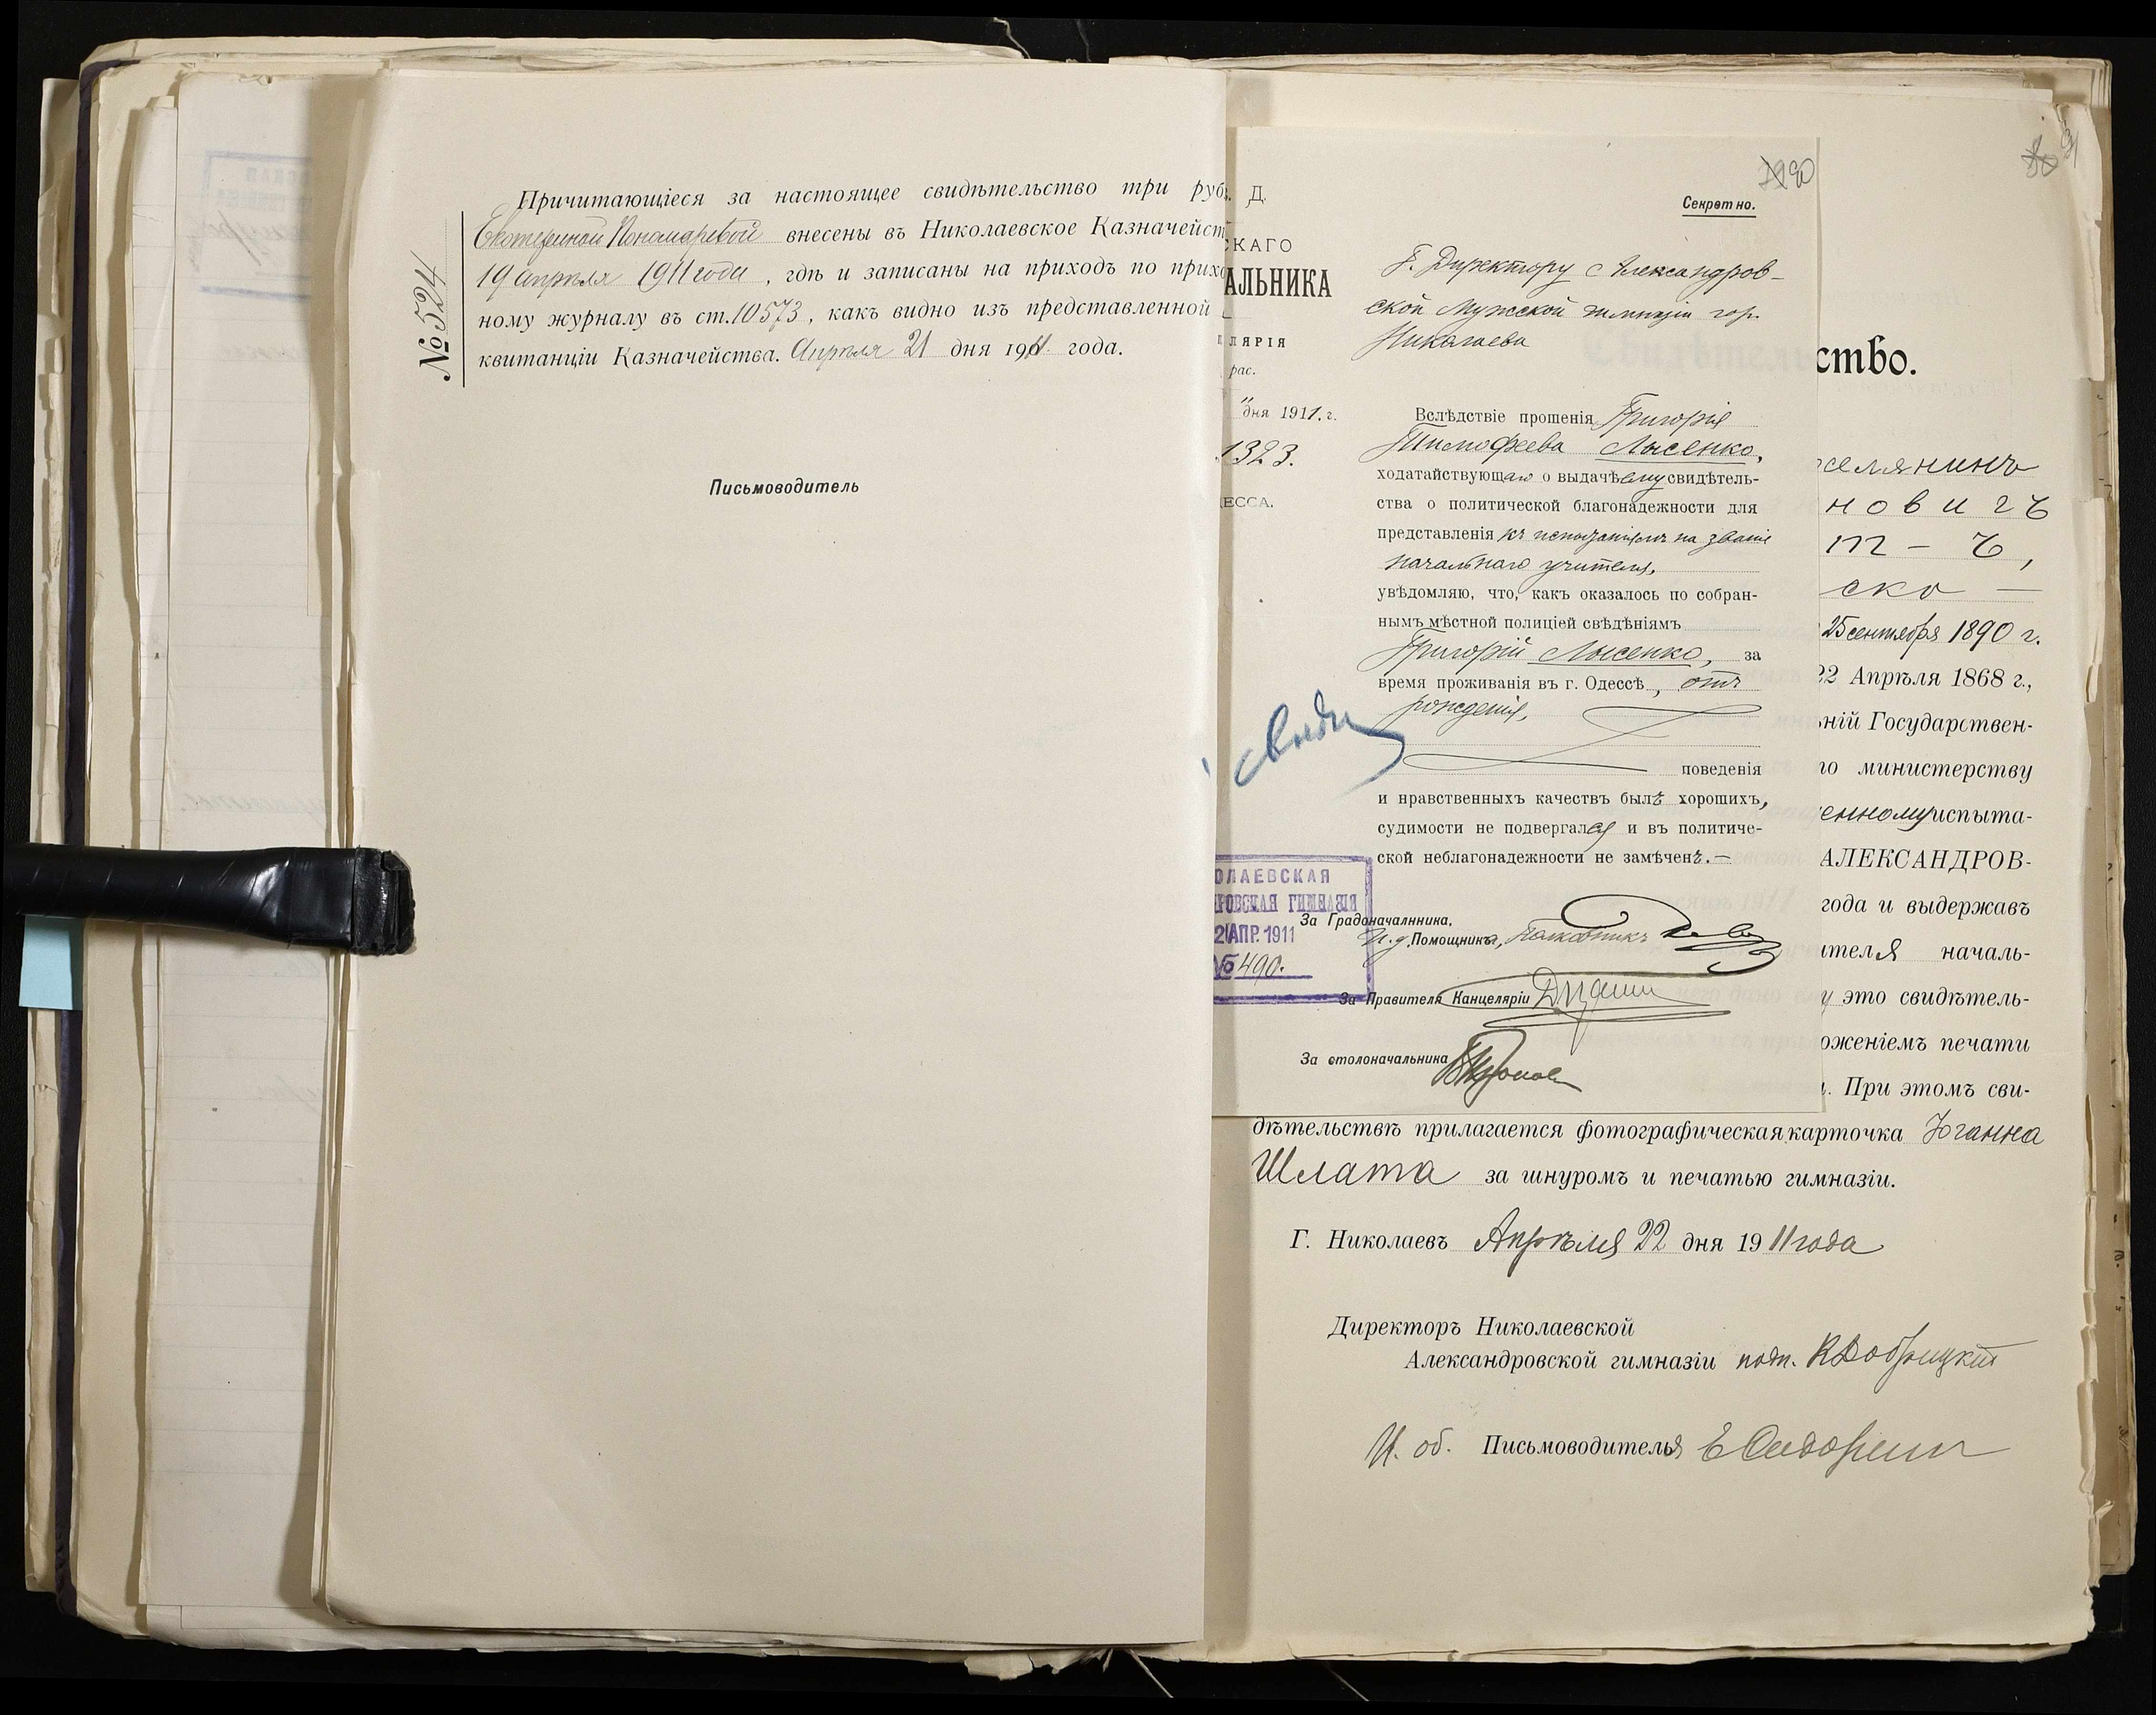 № 524
Причитающіеся за настоящее свидѣтельство три руб
Екатериной Пономаревой внесены въ Николаевское Казначейст
19 апрѣля 1911 года, гдѣ и записаны на приходъ по прихо
ному журналу въ ст. 10573, какъ видно изъ представленной
квитанціи Казначейства. Апрѣля 21 дня 1911 года.
Письмоводитель
Д.
СКАГО
АЛЬНИКА
ЛЯРІЯ
рас.
дня 1911. г.
1323.
ДЕССА.
свѣд
ОЛАЕВСКАЯ
РОВСКАЯ ГИМНАЗІЯ
2 АПР. 1911
№ 490.
90
Секретно.
Г. Директору Александров-
ской Мужской гимназіи гор.
Николаева
Вслѣдствіе прошенія Григорія
Тимофеева Лысенко,
ходатайствующаго о выдачѣ ему свидѣтель-
ства о политической благонадежности для
представленія къ испытаніямъ на званіе
начальнаго учителя,
увѣдомляю, что, какъ оказалось по собран-
нымъ мѣстной полиціей свѣдѣніямъ
Григорій Лысенко, за
время проживанія въ г. Одессѣ, отъ
рожденія,
поведенія
и нравственныхъ качествъ былъ хорошихъ,
судимости не подвергался и въ политиче-
ской неблагонадежности не замѣченъ. —
За Градоначальника,
И. д. Помощника, Полковникъ
За Правителя Канцеляріи
За столоначальника
ство.
селянинъ
новичъ
т - ъ,
ско —
25 сентября 1890 г.
22 Апрѣля 1868 г.,
ній Государствен-
го министерству
енному испыта-
АЛЕКСАНДРОВ-
года и выдержавъ
ителя началь-
у это свидѣтель-
оженіемъ печати
. При этомъ сви-
дѣтельствѣ прилагается фотографическая карточка Іоганна
Шлата за шнуромъ и печатью гимназіи.
Г. Николаевъ Апрѣля 22 дня 1911 года
Директоръ Николаевской
Александровской гимназіи подп. К Добрицкій
И. об. Письмоводителя Е Сидорин